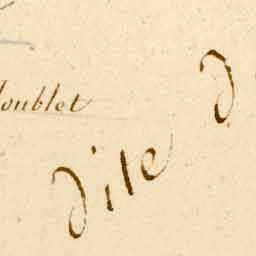 Doublet
dite d